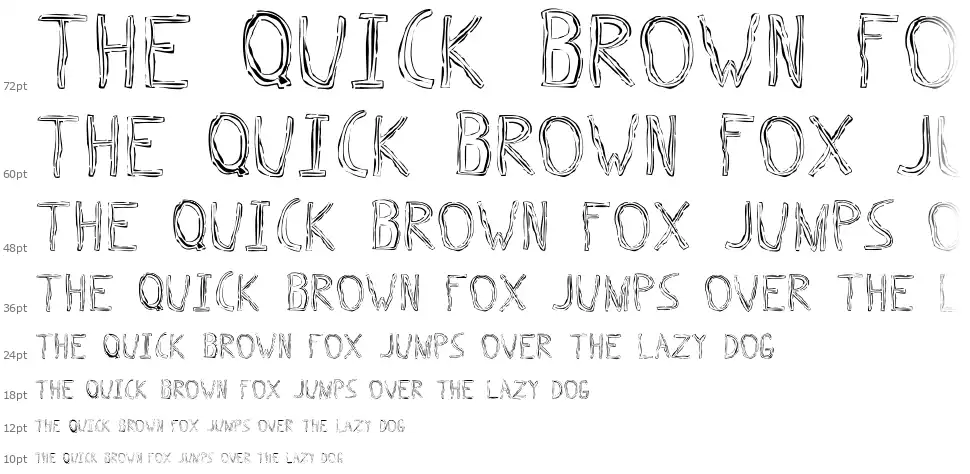 72pt THE QUICK BROWN FO
60pt THE QUICK BROWN FOX JU
48pt THE QUICK BROWN FOX JUMPS O
36pt THE QUICK BROWN FOX JUMPS OVER THE L
24pt THE QUICK BROWN FOX JUMPS OVER THE LAZY DOG
18pt THE QUICK BROWN FOX JUMPS OVER THE LAZY DOG
12pt THE QUICK BROWN FOX JUMPS OVER THE LAZY DOG
10pt THE QUICK BROWN FOX JUMPS OVER THE LAZY DOG